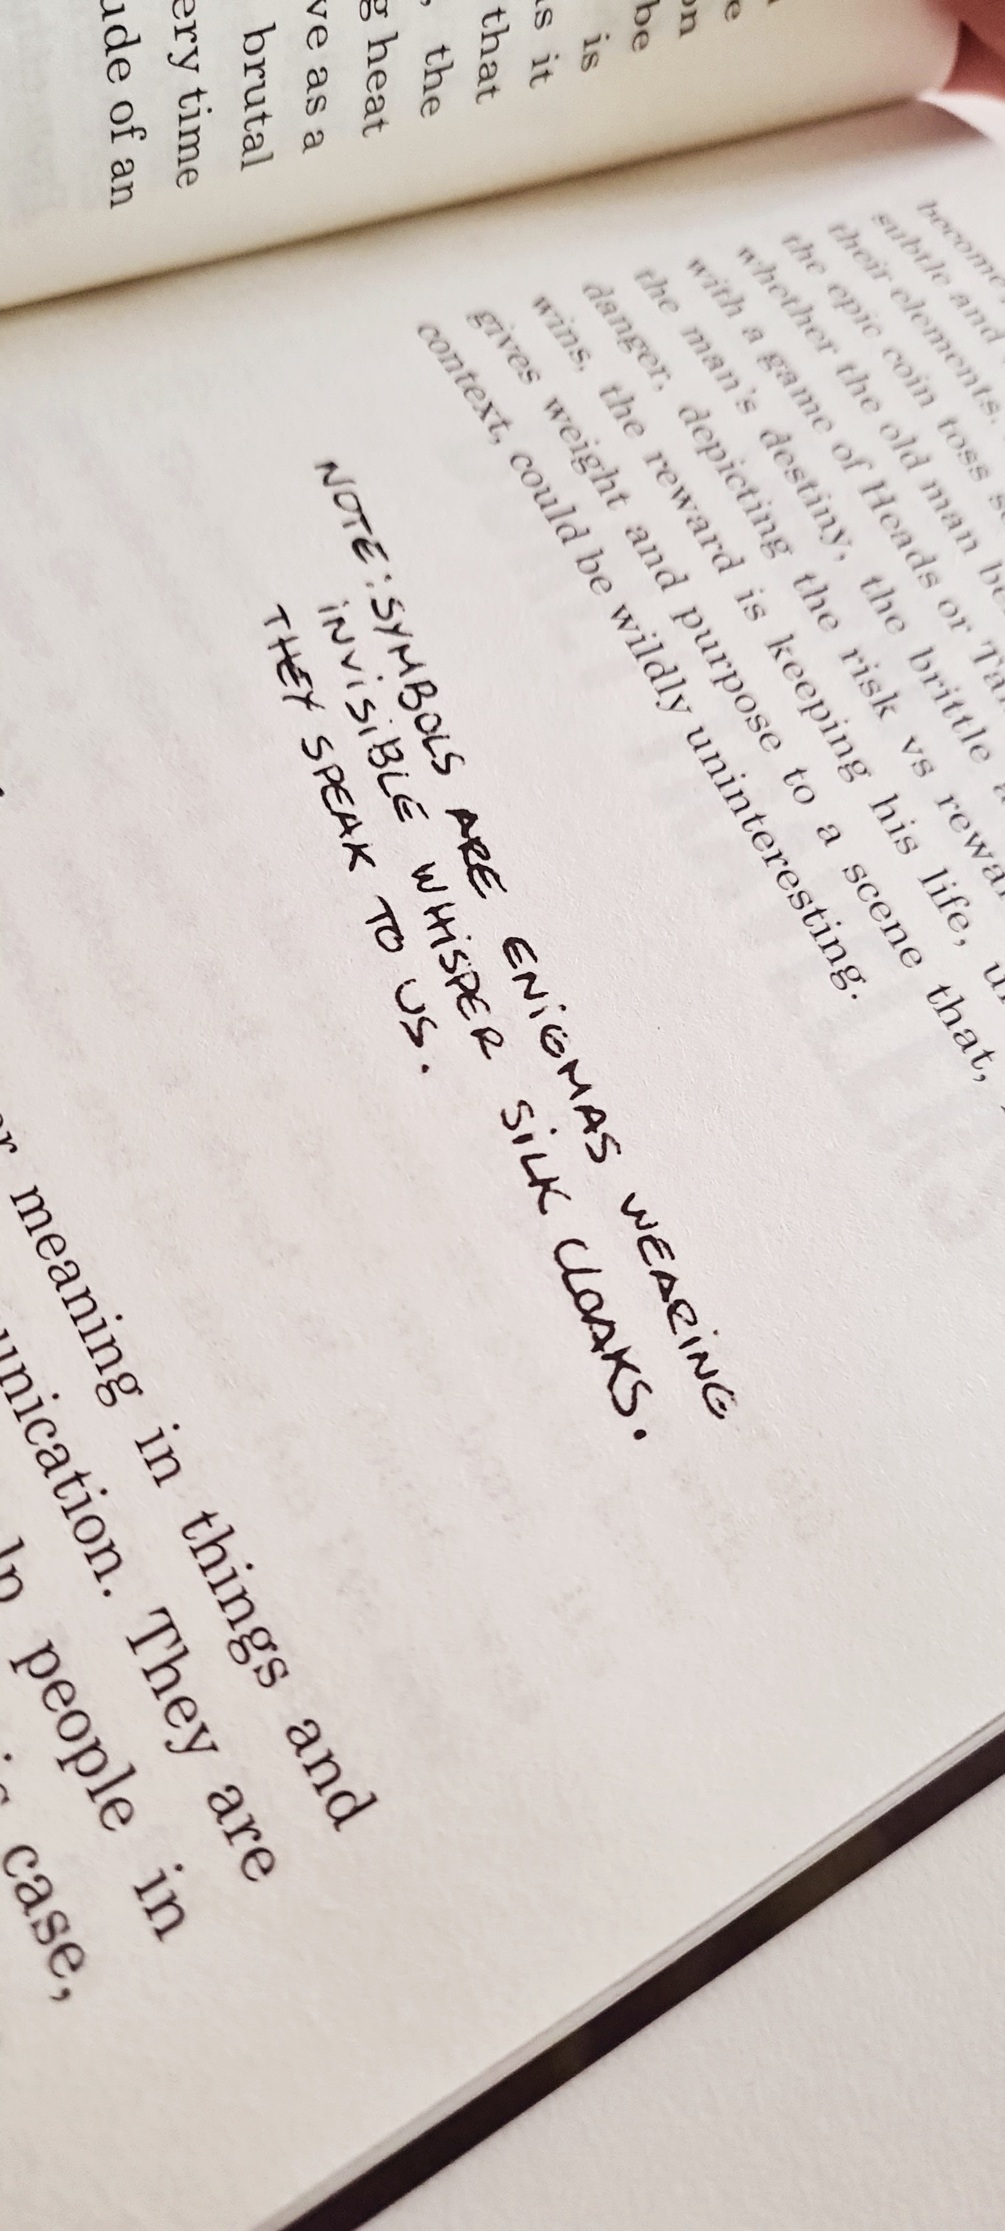 ude of an
ery time
brutal
ve as a
g heat
, the
that
s it
is
be
on
e
become
subtle and
their elements.
the epic coin toss s
whether the old man be
with a game of Heads or Ta
the man's destiny, the brittle a
danger, depicting the risk vs rewa
wins, the reward is keeping his life, u
gives weight and purpose to a scene that,
context, could be wildly uninteresting.
NOTE: SYMBOLS ARE ENIGMAS WEARING
INVISIBLE WHISPER SILK CLOAKS.
THEY SPEAK TO US.
r meaning in things and
unication. They are
lp people in
case,